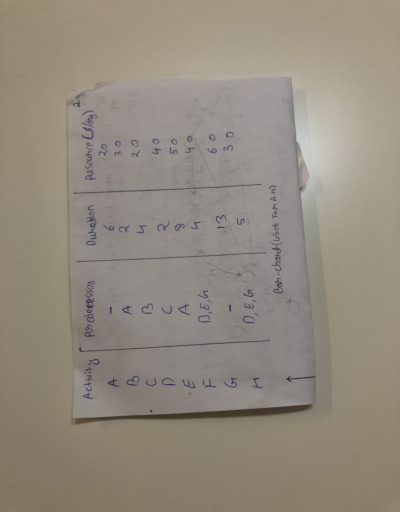 Activity Predecessor Duration Resource ($/day)
A - 6 20
B A 2 30
C B 4 20
D C 2 40
E A 8 50
F D,E,G 4 40
G - 13 60
H D,E,G 5 30
Bar-chart (Used From